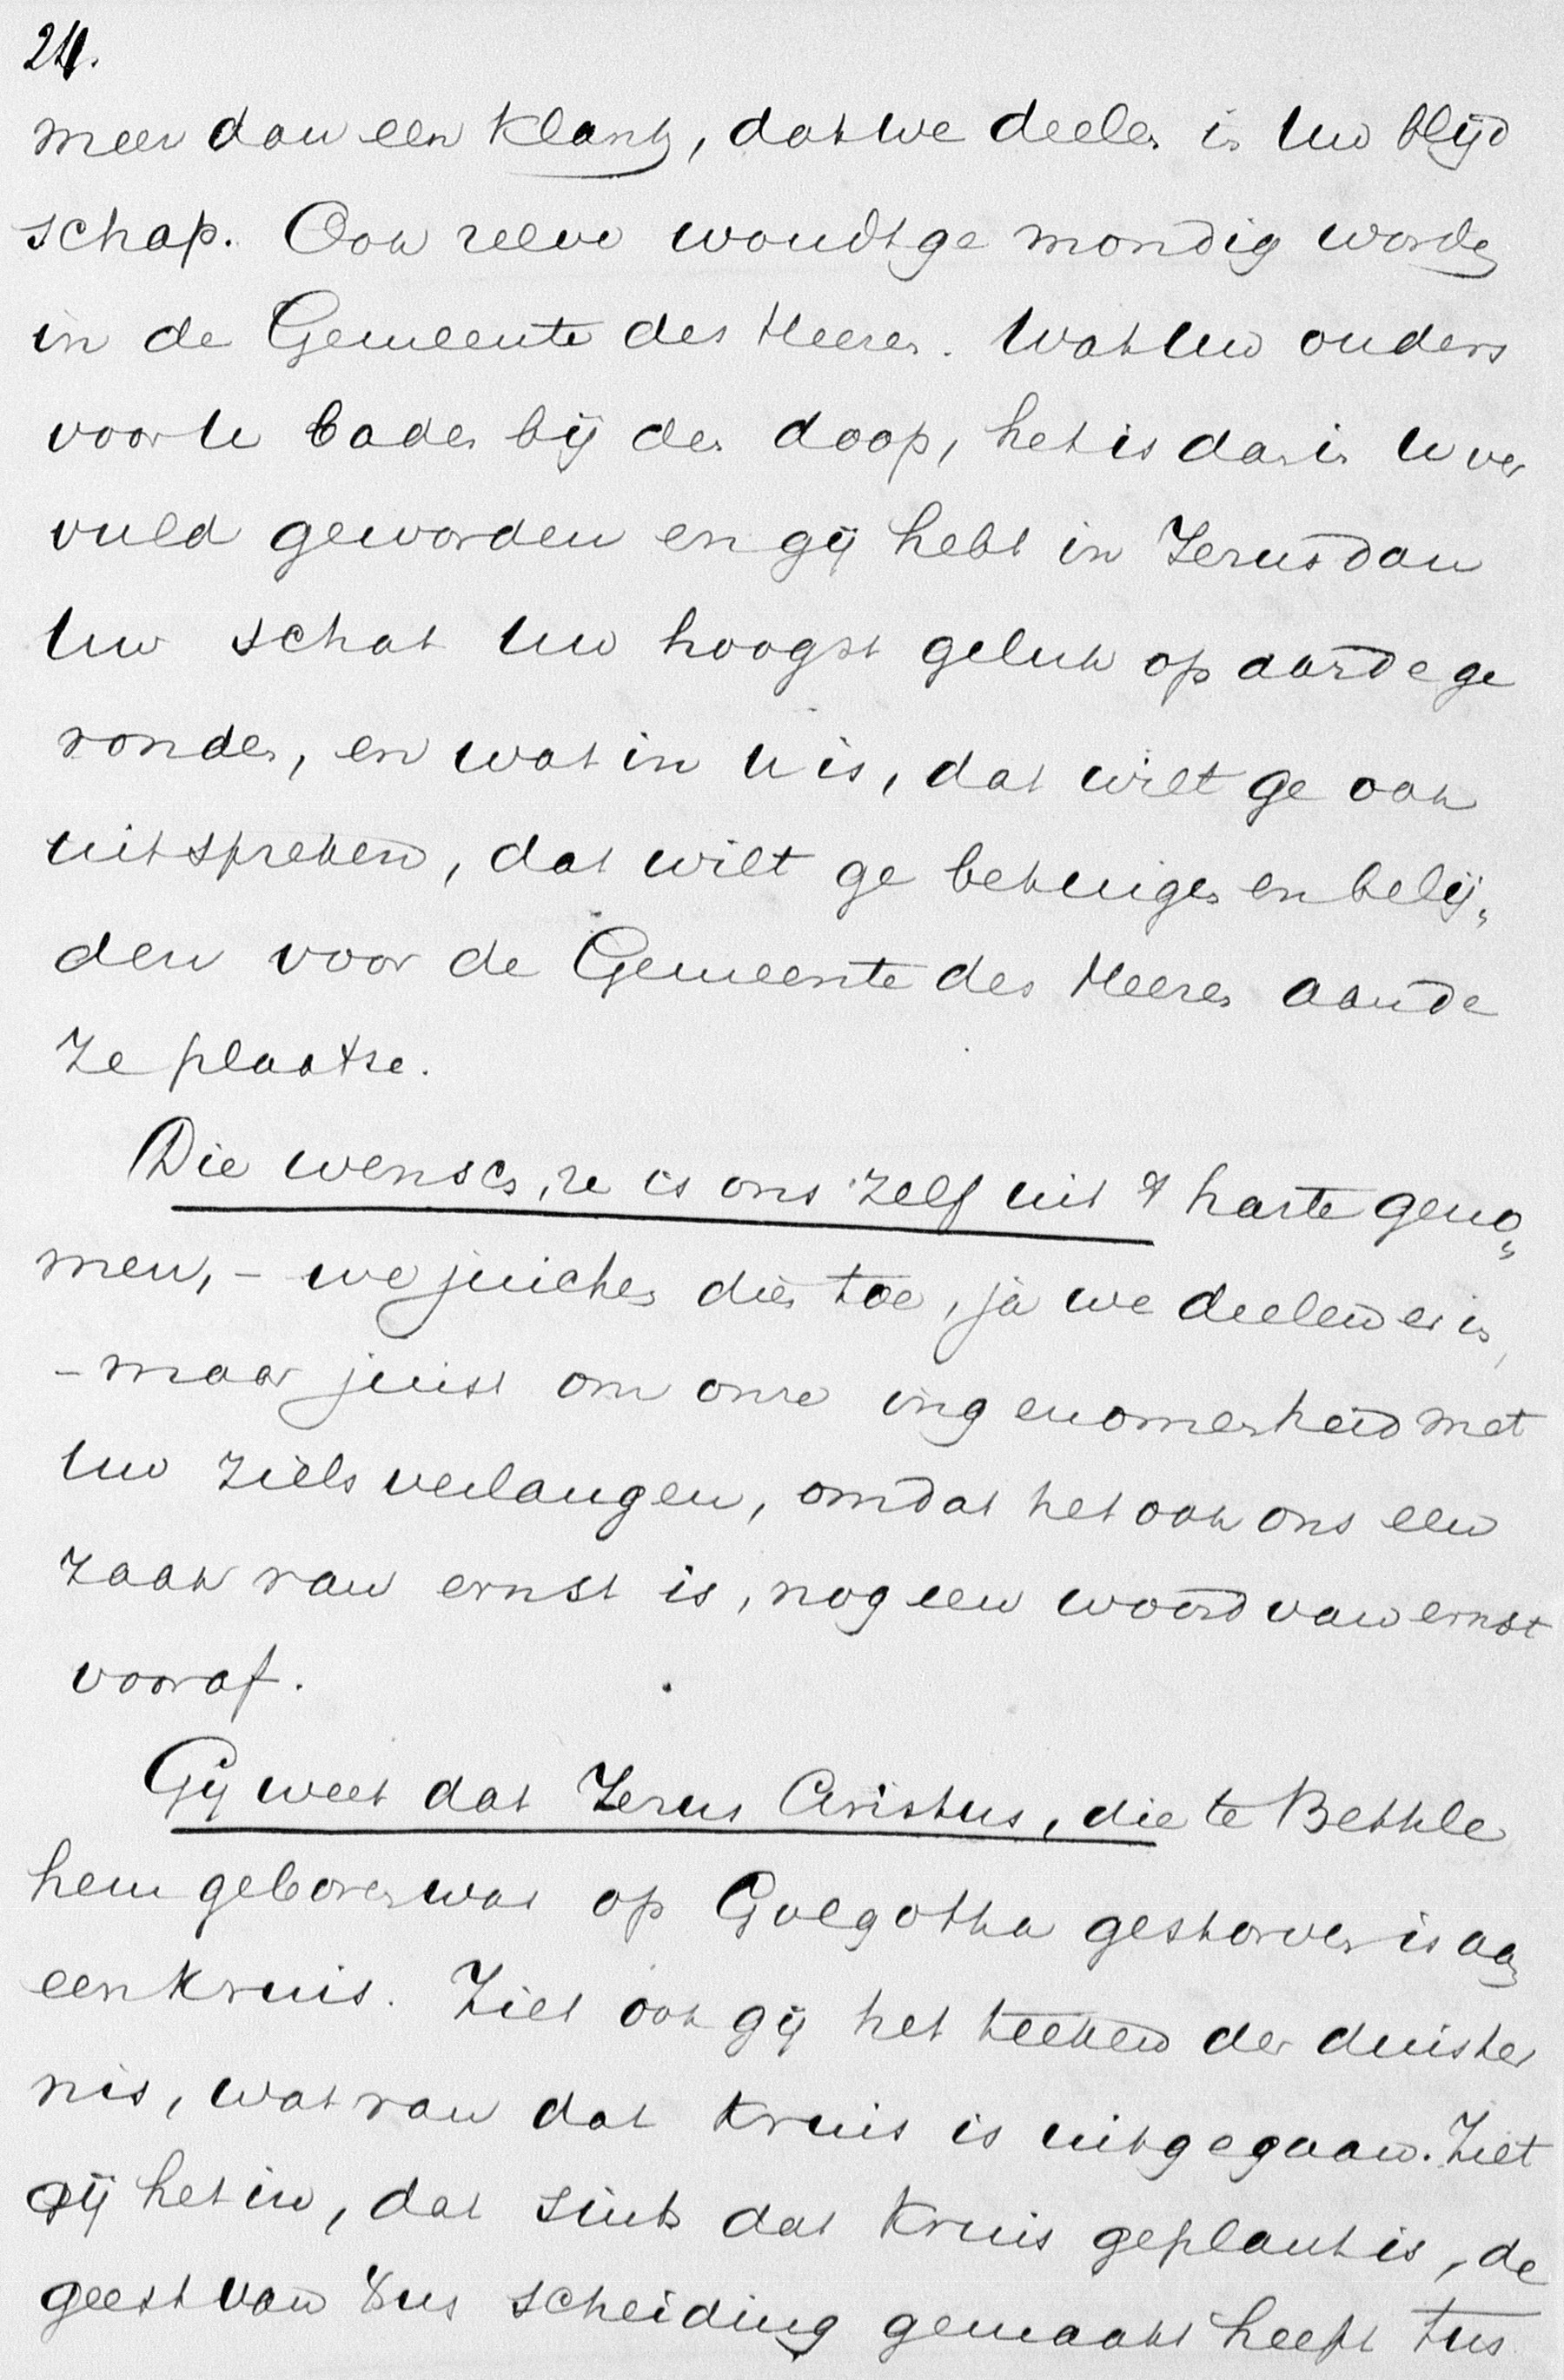 24.
meer dan een klank, dat we deelen in Uw blijd
schap. Ook zelve woudt ge mondig worden
in de Gemeente des Heeren. Wat Uw ouders
voor U baden bij den doop, het is dan in U ver
vuld geworden en gij hebt in Jezus dan
Uw schat Uw hoogst geluk op aarde ge
vonden, en wat in U is, dat wilt ge ook
uitspreken, dat wilt ge betuigen en belij„
den voor de Gemeente des Heeren aan de
ze plaatse.
Die wensch, ze is ons zelf uit 't harte geno„
men, - we juichen dien toe, ja we deelen er in,
- maar juist om onze ingenomenheid met
Uw zielsverlangen, omdat het ook ons een
zaak van ernst is, nog een woord van ernst
vooraf.
Gij weet dat Jezus Christus, die te Bethle
hem geboren was op Golgotha gestorven is aan
een kruis. Ziet ook gij het teeken der duister
nis, wat van dat kruis is uitgegaan. Ziet
gij het in, dat sinds dat kruis geplant is, de
geest van scheiding gemaakt heeft tus